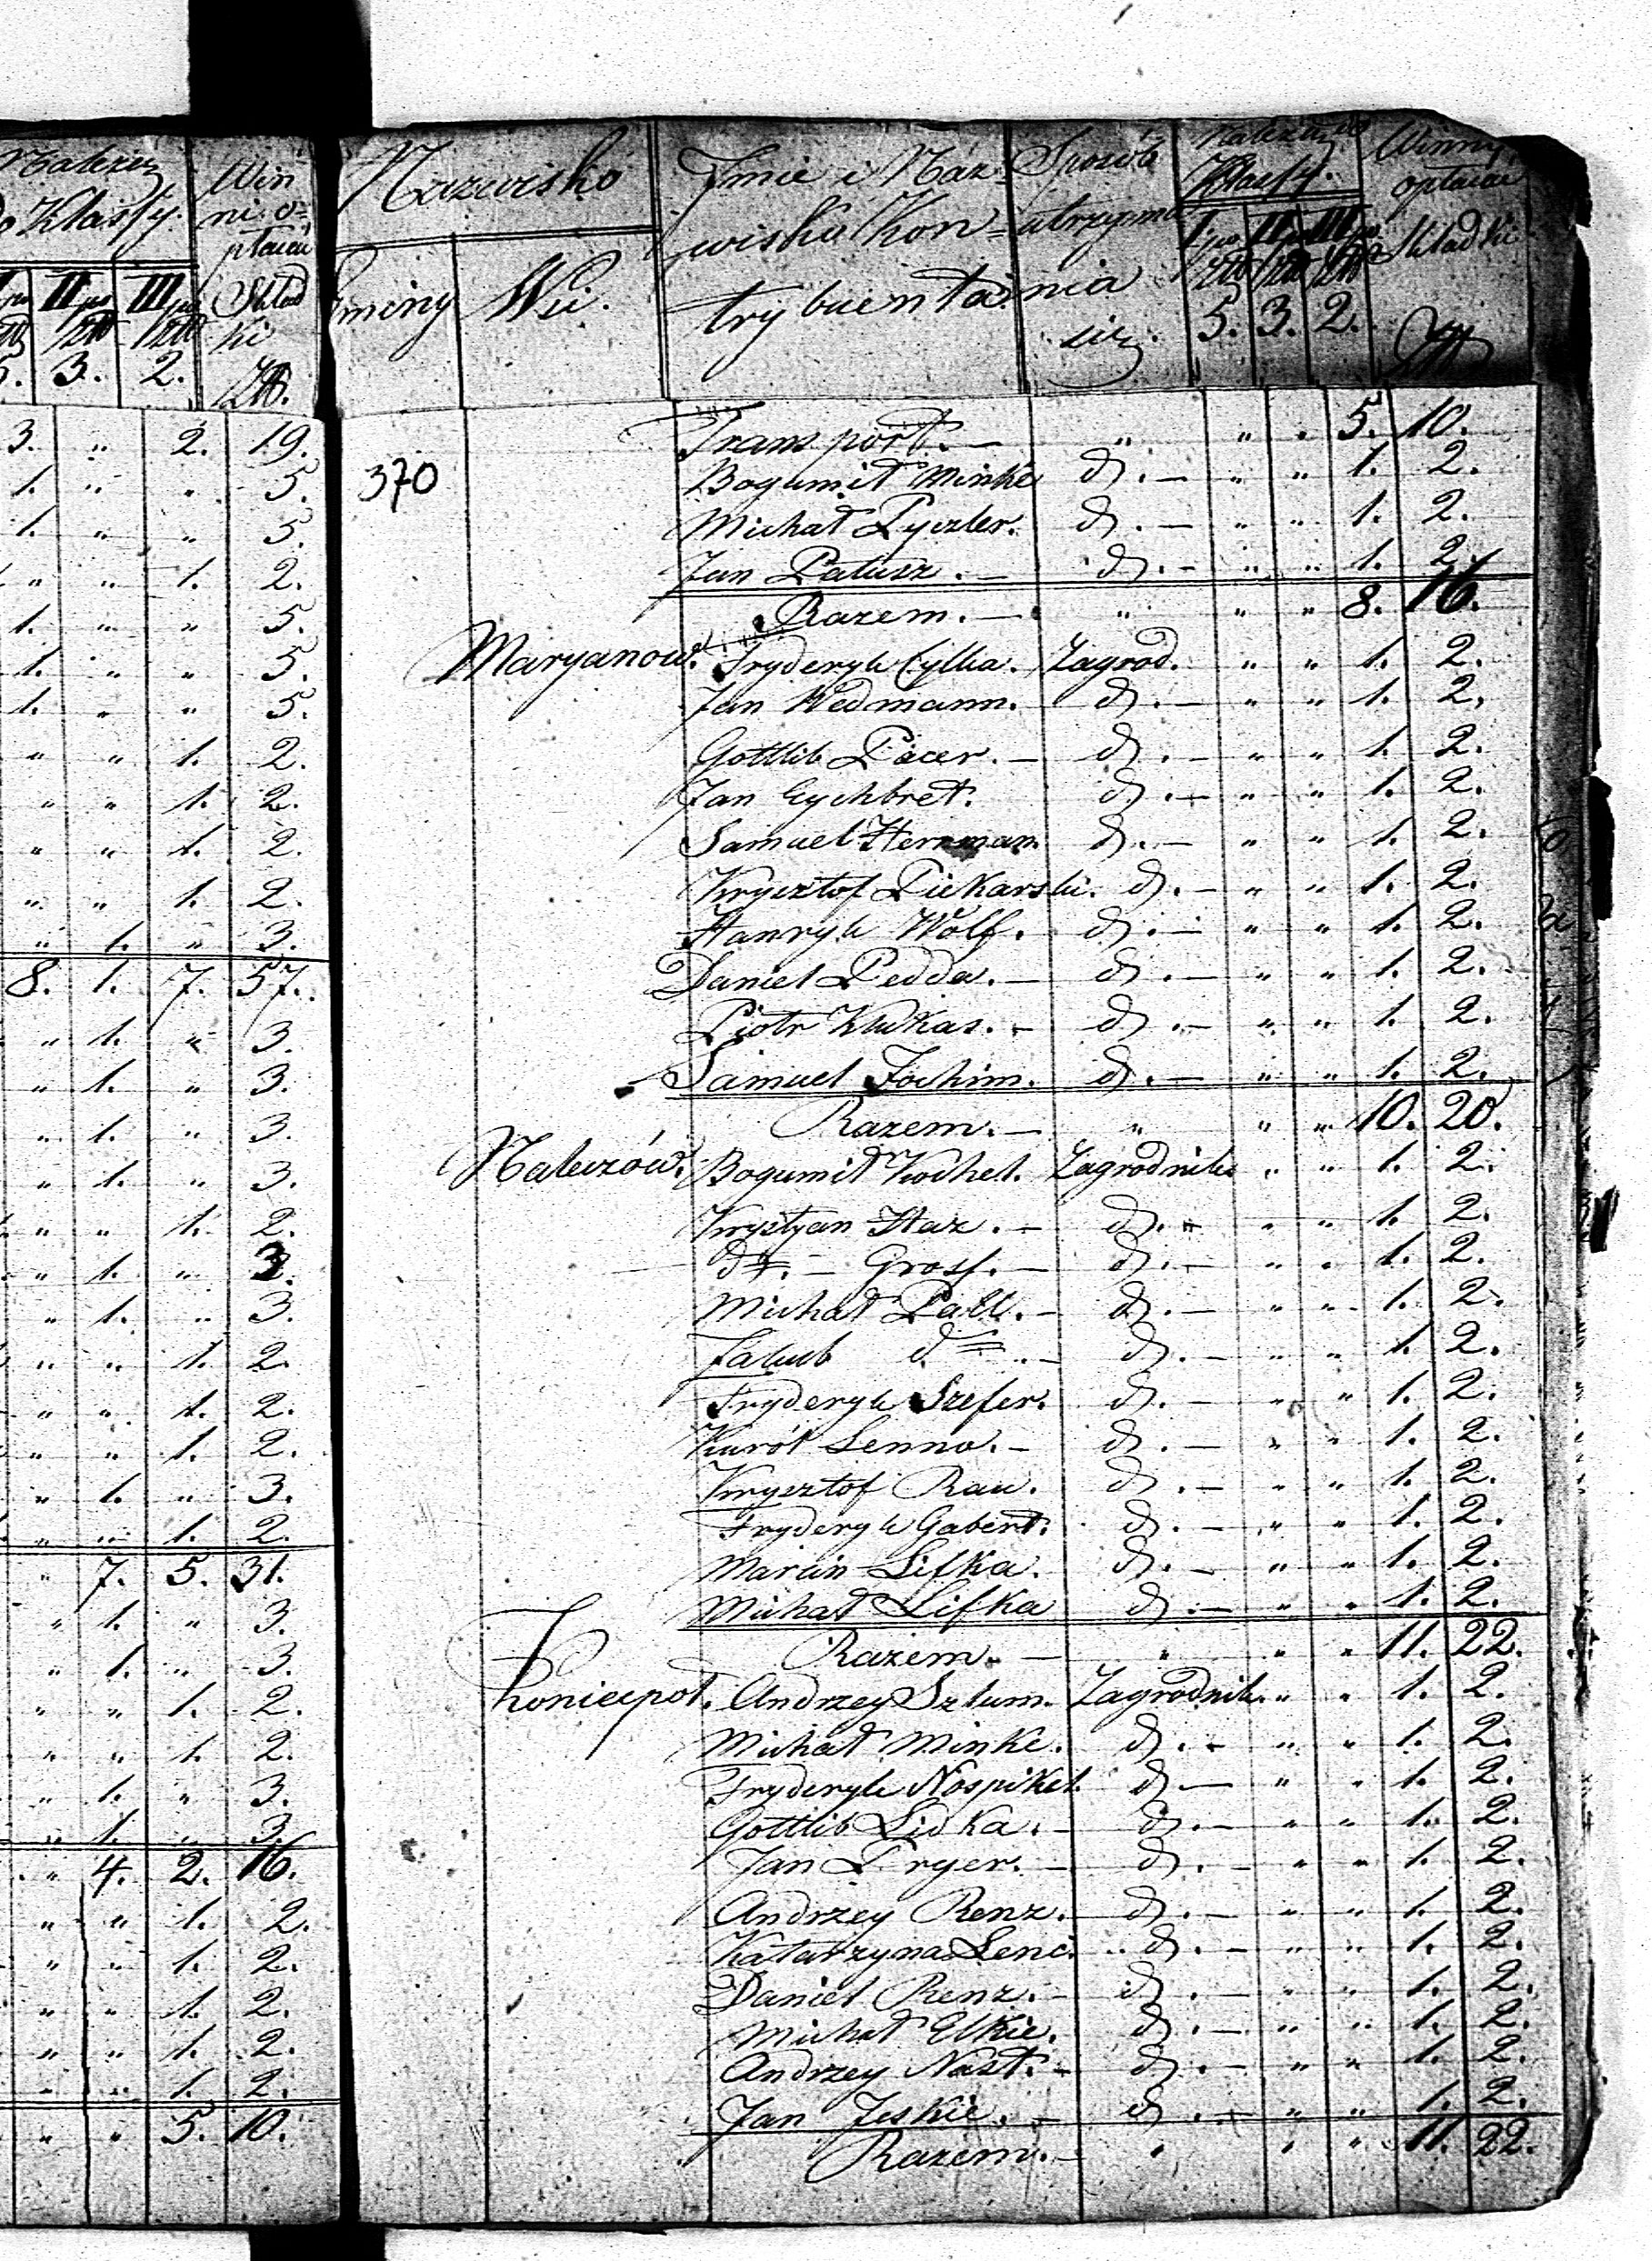 Należą
do Klassy.
Win
ni o=
płacać
Skład
ki
Złp.
I po II po III po
złp złp złp
5. 3. 2.
3. „ 2. 19.
1. „ „ 5.
1. „ „ 5.
„ „ 1. 2.
1. „ „ 5.
1. „ „ 5.
1. „ „ 5.
„ „ 1. 2.
„ „ 1. 2.
„ „ 1. 2.
„ „ 1. 2.
„ 1. „ 3.
8. 1. 7. 57.
„ 1. „ 3.
„ 1. „ 3.
„ 1. „ 3.
„ 1. „ 3.
„ „ 1. 2.
„ 1. „ 3.
„ 1. „ 3.
„ „ 1. 2.
„ „ 1. 2.
„ „ 1. 2.
„ 1. „ 3.
„ „ 1. 2.
„ 7. 5. 31.
„ 1. „ 3.
„ 1. „ 3.
„ „ 1. 2.
„ „ 1. 2.
„ 1. „ 3.
„ 1. „ 3.
„ 4. 2. 16.
„ „ 1. 2.
„ „ 1. 2.
„ „ 1. 2.
„ „ 1. 2.
„ „ 1. 2.
„ „ 5. 10.
Nazwisko
Gminy Wsi.
Imie i Naz=
wisko Kon=
trybuenta
Sposób
utrzyma
nia
się.
Należą do
Klassy.
I po II po III po
złp złp złp
5. 3. 2.
Winny
opłacać
Składki
Złp
Transport. — „ „ „ 5. 10.
370 Bogumił Minke d. — „ „ 1. 2.
Michał Pyczler. d. — „ „ 1. 2.
Jan Patusz. — d. — „ „ 1. 2.
Razem. — „ „ „ 8. 16.
Maryanow. Fryderyk Cylka. Zagrod. „ „ 1. 2.
Jan Wedmann. d. — „ „ 1. 2.
Gottlib Pacer. — d. — „ „ 1. 2.
Jan Eychbret. d. — „ „ 1. 2.
Samuel Herrman. d. — „ „ 1. 2.
Krysztof Piekarski. d. — „ „ 1. 2.
Hanryk Wolf. d. — „ „ 1. 2.
Daniel Pedda. — d. — „ „ 1. 2.
Piotr Klukas. — d. — „ „ 1. 2.
Samuel Jochim. d. — „ „ 1. 2.
Razem. — „ „ „ 10. 20.
Małuzów. Bogumił Kochel. Zagrodnik „ „ 1. 2.
Krystyan Haz. — d. — „ „ 1. 2.
d. — Gross. — d. — „ „ 1. 2.
Michał Pall. — d. — „ „ 1. 2.
Jakub d. — d. — „ „ 1. 2.
Fryderyk Szefer. d. — „ „ 1. 2.
Karól Senno. — d. — „ „ 1. 2.
Krysztof Rau. d. — „ „ 1. 2.
Fryderyk Gabert. d. — „ „ 1. 2.
Marcin Lifka. d. — „ „ 1. 2.
Michał Lifka d. — „ „ 1. 2.
Razem. — „ „ „ 11. 22.
Koniecpol. Andrzey Sztum. Zagrodnik. „ „ 1. 2.
Michał Minke. d. — „ „ 1. 2.
Fryderyk Nospikel. d. — „ „ 1. 2.
Gottlib Lidka. — d. — „ „ 1. 2.
Jan Pryer. — d. — „ „ 1. 2.
Andrzey Renz. — d. — „ „ 1. 2.
Katarzyna Lenc. d. — „ „ 1. 2.
Daniel Renz. — d. — „ „ 1. 2.
Michał Elkie. d. — „ „ 1. 2.
Andrzey Nast. — d. — „ „ 1. 2.
Jan Jeskie. — d. — „ „ 1. 2.
Razem. — „ „ „ 11. 22.